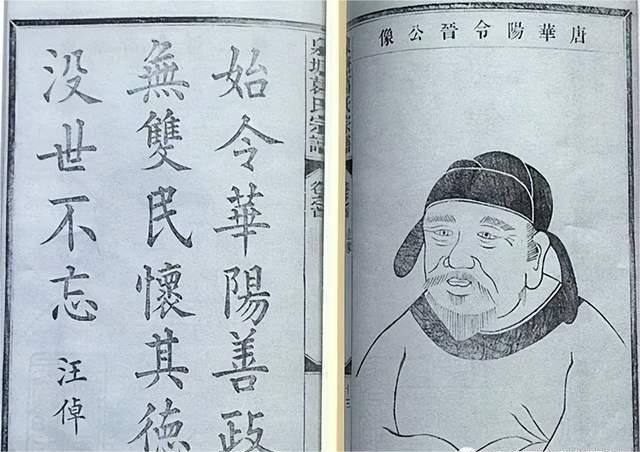 唐華陽令晉公像
葛氏宗譜
始令華陽善政
無雙民懷其德
没世不忘
汪倬